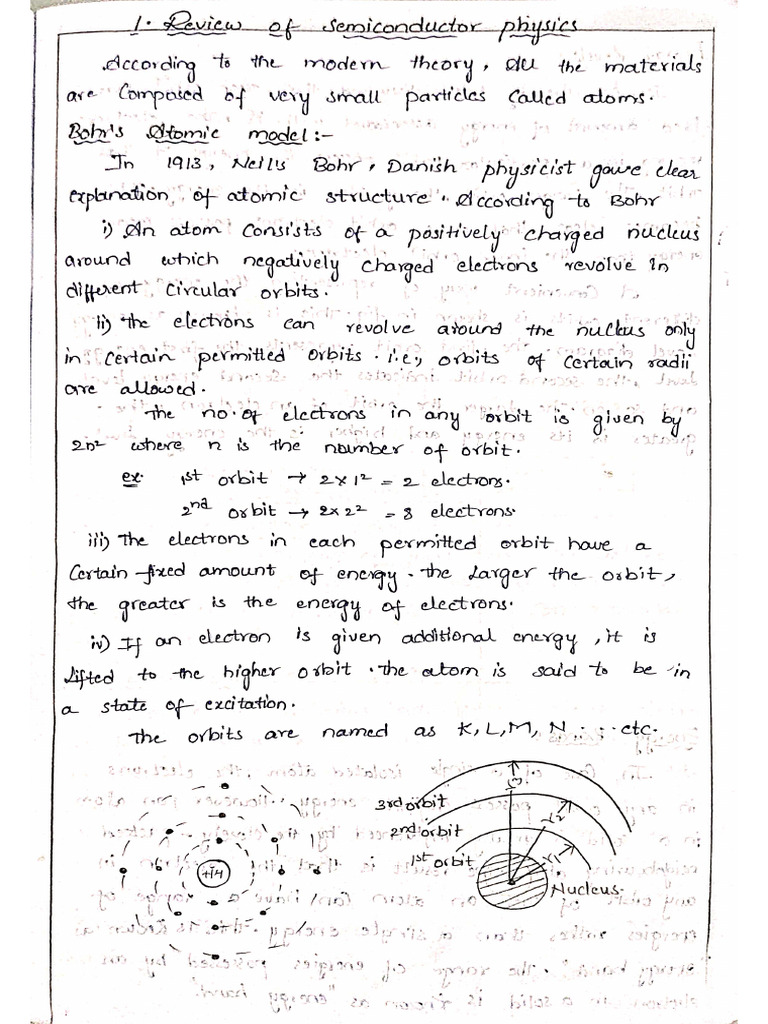 1. Review of semiconductor physics
According to the modern theory, All the materials
are Composed of very small particles Called atoms.
Bohr's Atomic model:-
In 1913, Neils Bohr, Danish physicist gave clear
explanation of atomic structure. According to Bohr
i) An atom Consists of a positively charged nucleus
around which negatively charged electrons revolve in
different Circular orbits.
ii) The electrons can revolve around the nucleus only
in Certain permitted orbits. i.e., orbits of Certain radii
are allowed.
The no. of electrons in any orbit is given by
2n² where n is the number of orbit.
ex: 1st orbit → 2×1² = 2 electrons.
2nd orbit → 2×2² = 8 electrons.
iii) The electrons in each permitted orbit have a
Certain fixed amount of energy. The Larger the orbit,
the greater is the energy of electrons.
iv) If an electron is given additional energy, it is
lifted to the higher orbit. The atom is said to be in
a state of excitation.
The orbits are named as K, L, M, N... etc.
3rd orbit r3
2nd orbit r2
1st orbit r1
+14
Nucleus.